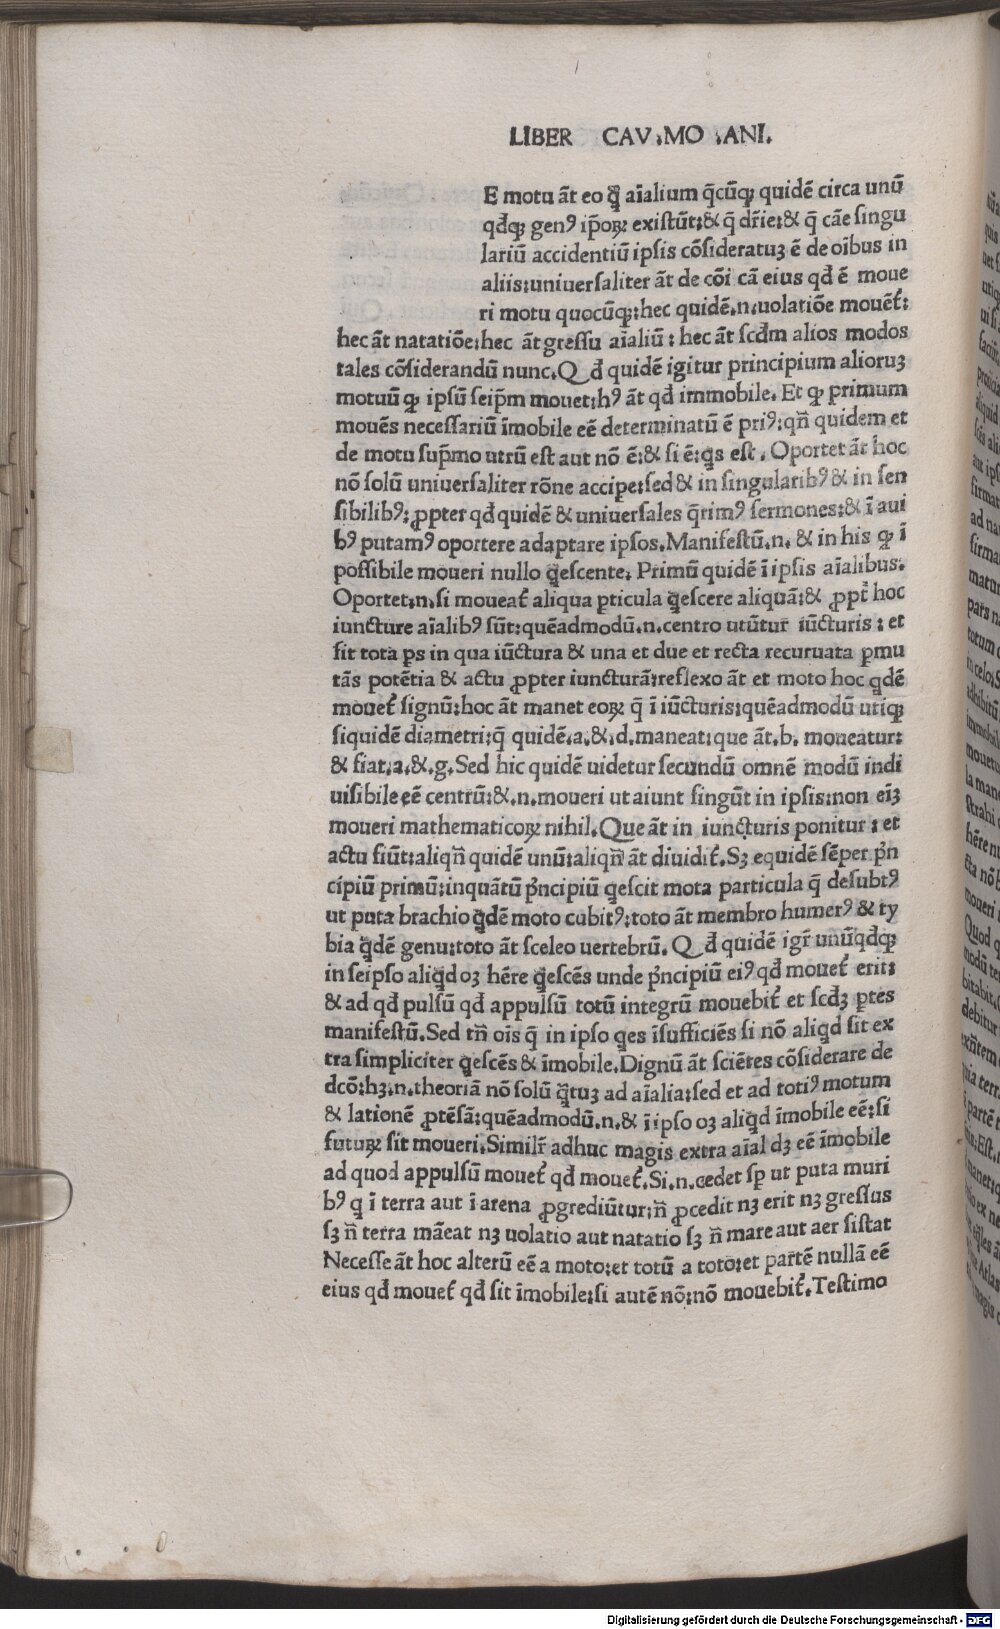 LIBER CAV.MO .ANI.
E motu āt eo q̄ aīalium q̄cūqꝫ quidē circa unū
qđqꝫ genꝰ ip̄oꝝ existūt:& q̄ dr̄ie:& q̄ cāe singu
lariū accidentiū ipsis cōsideratuꝫ ē de oībus in
aliis:uniuersaliter āt de cōi cā eius qđ ē moue
ri motu quocūqꝫ:hec quidē.n.uolatiōe mouēt̉:
hec āt natatiōe:hec āt gressu aīaliū : hec āt scđm alios modos
tales cōsiderandū nunc.Qđ quidē igitur principium alioruꝫ
motuū qꝫ ipsū seip̄m mouet:hꝰ āt qđ immobile. Et qꝫ primum
mouēs necessariū īmobile eē determinatū ē priꝰ:qn̄ quidem et
de motu sup̄mo utrū est aut nō ē:& si ē:qͥs est . Oportet āt hoc
nō solū uniuersaliter rōne accipe:sed & in singularibꝰ & in sen
sibilibꝰ:ꝓpter qđ quidē & uniuersales q̄rimꝰ sermones:& ī aui
bꝰ putamꝰ oportere adaptare ipsos.Manifestū.n. & in his qꝫ ī
possibile moueri nullo qͥescente. Primū quidē ī ipsis aīalibus.
Oportet.n.si moueat̉ aliqua ꝑticula qͥescere aliquā:& ꝓpt̉ hoc
iuncture aīalibꝰ sūt:quēadmodū.n.centro utūtur iūcturis : et
fit tota ꝑs in qua iūctura & una et due et recta recuruata ꝑmu
tās potētia & actu ꝓpter iuncturā:reflexo āt et moto hoc qͥdē
mouet̉ signū:hoc āt manet eoꝝ q̄ ī iūcturis:quēadmodū utiqꝫ
siquidē diametri:q̄ quidē.a.&.d.maneat:que āt.b. moueatur:
& fiat.a.&.g.Sed hic quidē uidetur secundū omnē modū indi
uisibile eē centrū:&.n.moueri ut aiunt fingūt in ipsis:non eīꝫ
moueri mathematicoꝝ nihil.Que āt in iuncturis ponitur : et
actu fiūt:aliqn̄ quidē unū:aliqn̄ āt diuidit̉.Sꝫ equidē sēper pͥn
cipiū primū:inquātū pͥncipiū qͥescit mota particula q̄ desubtꝰ
ut puta brachio qͥdē moto cubitꝰ:toto āt membro humerꝰ & ty
bia qͥdē genu:toto āt sceleo uertebrū. Qđ quidē igr̄ unūqđqꝫ
in seipso aliqͥd oꝫ hēre qͥescēs unde pͥncipiū eiꝰ qđ mouet̉ erit:
& ad qđ pulsū qđ appulsū totū integrū mouebit̉ et scđꝫ ꝑtes
manifestū.Sed tn̄ ois q̄ in ipso qͥes īsufficiēs si nō aliqͥd sit ex
tra simpliciter qͥescēs & īmobile.Dignū āt sciētes cōsiderare de
dcō:hꝫ.n.theoriā nō solū qͣtuꝫ ad aīalia:sed et ad totiꝰ motum
& lationē ꝓtēsā:quēadmodū.n.& ī ipso oꝫ aliqͥd īmobile eē:si
futuꝝ sit moueri.Similr̄ adhuc magis extra aīal dꝫ eē īmobile
ad quod appulsū mouet̉ qđ mouet̉.Si.n.cedet sꝑ ut puta muri
bꝰ q̄ ī terra aut ī arena ꝓgrediūtur:n̄ ꝓcedit nꝫ erit nꝫ gressus
sꝫ n̄ terra māeat nꝫ uolatio aut natatio sꝫ n̄ mare aut aer sistat
Necesse āt hoc alterū eē a moto:et totū a toto:et partē nullā eē
eius qđ mouet̉ qđ sit īmobile:si autē nō:nō mouebit̉.Testimo
Digitalisierung gefördert durch die Deutsche Forschungsgemeinschaft - DFG